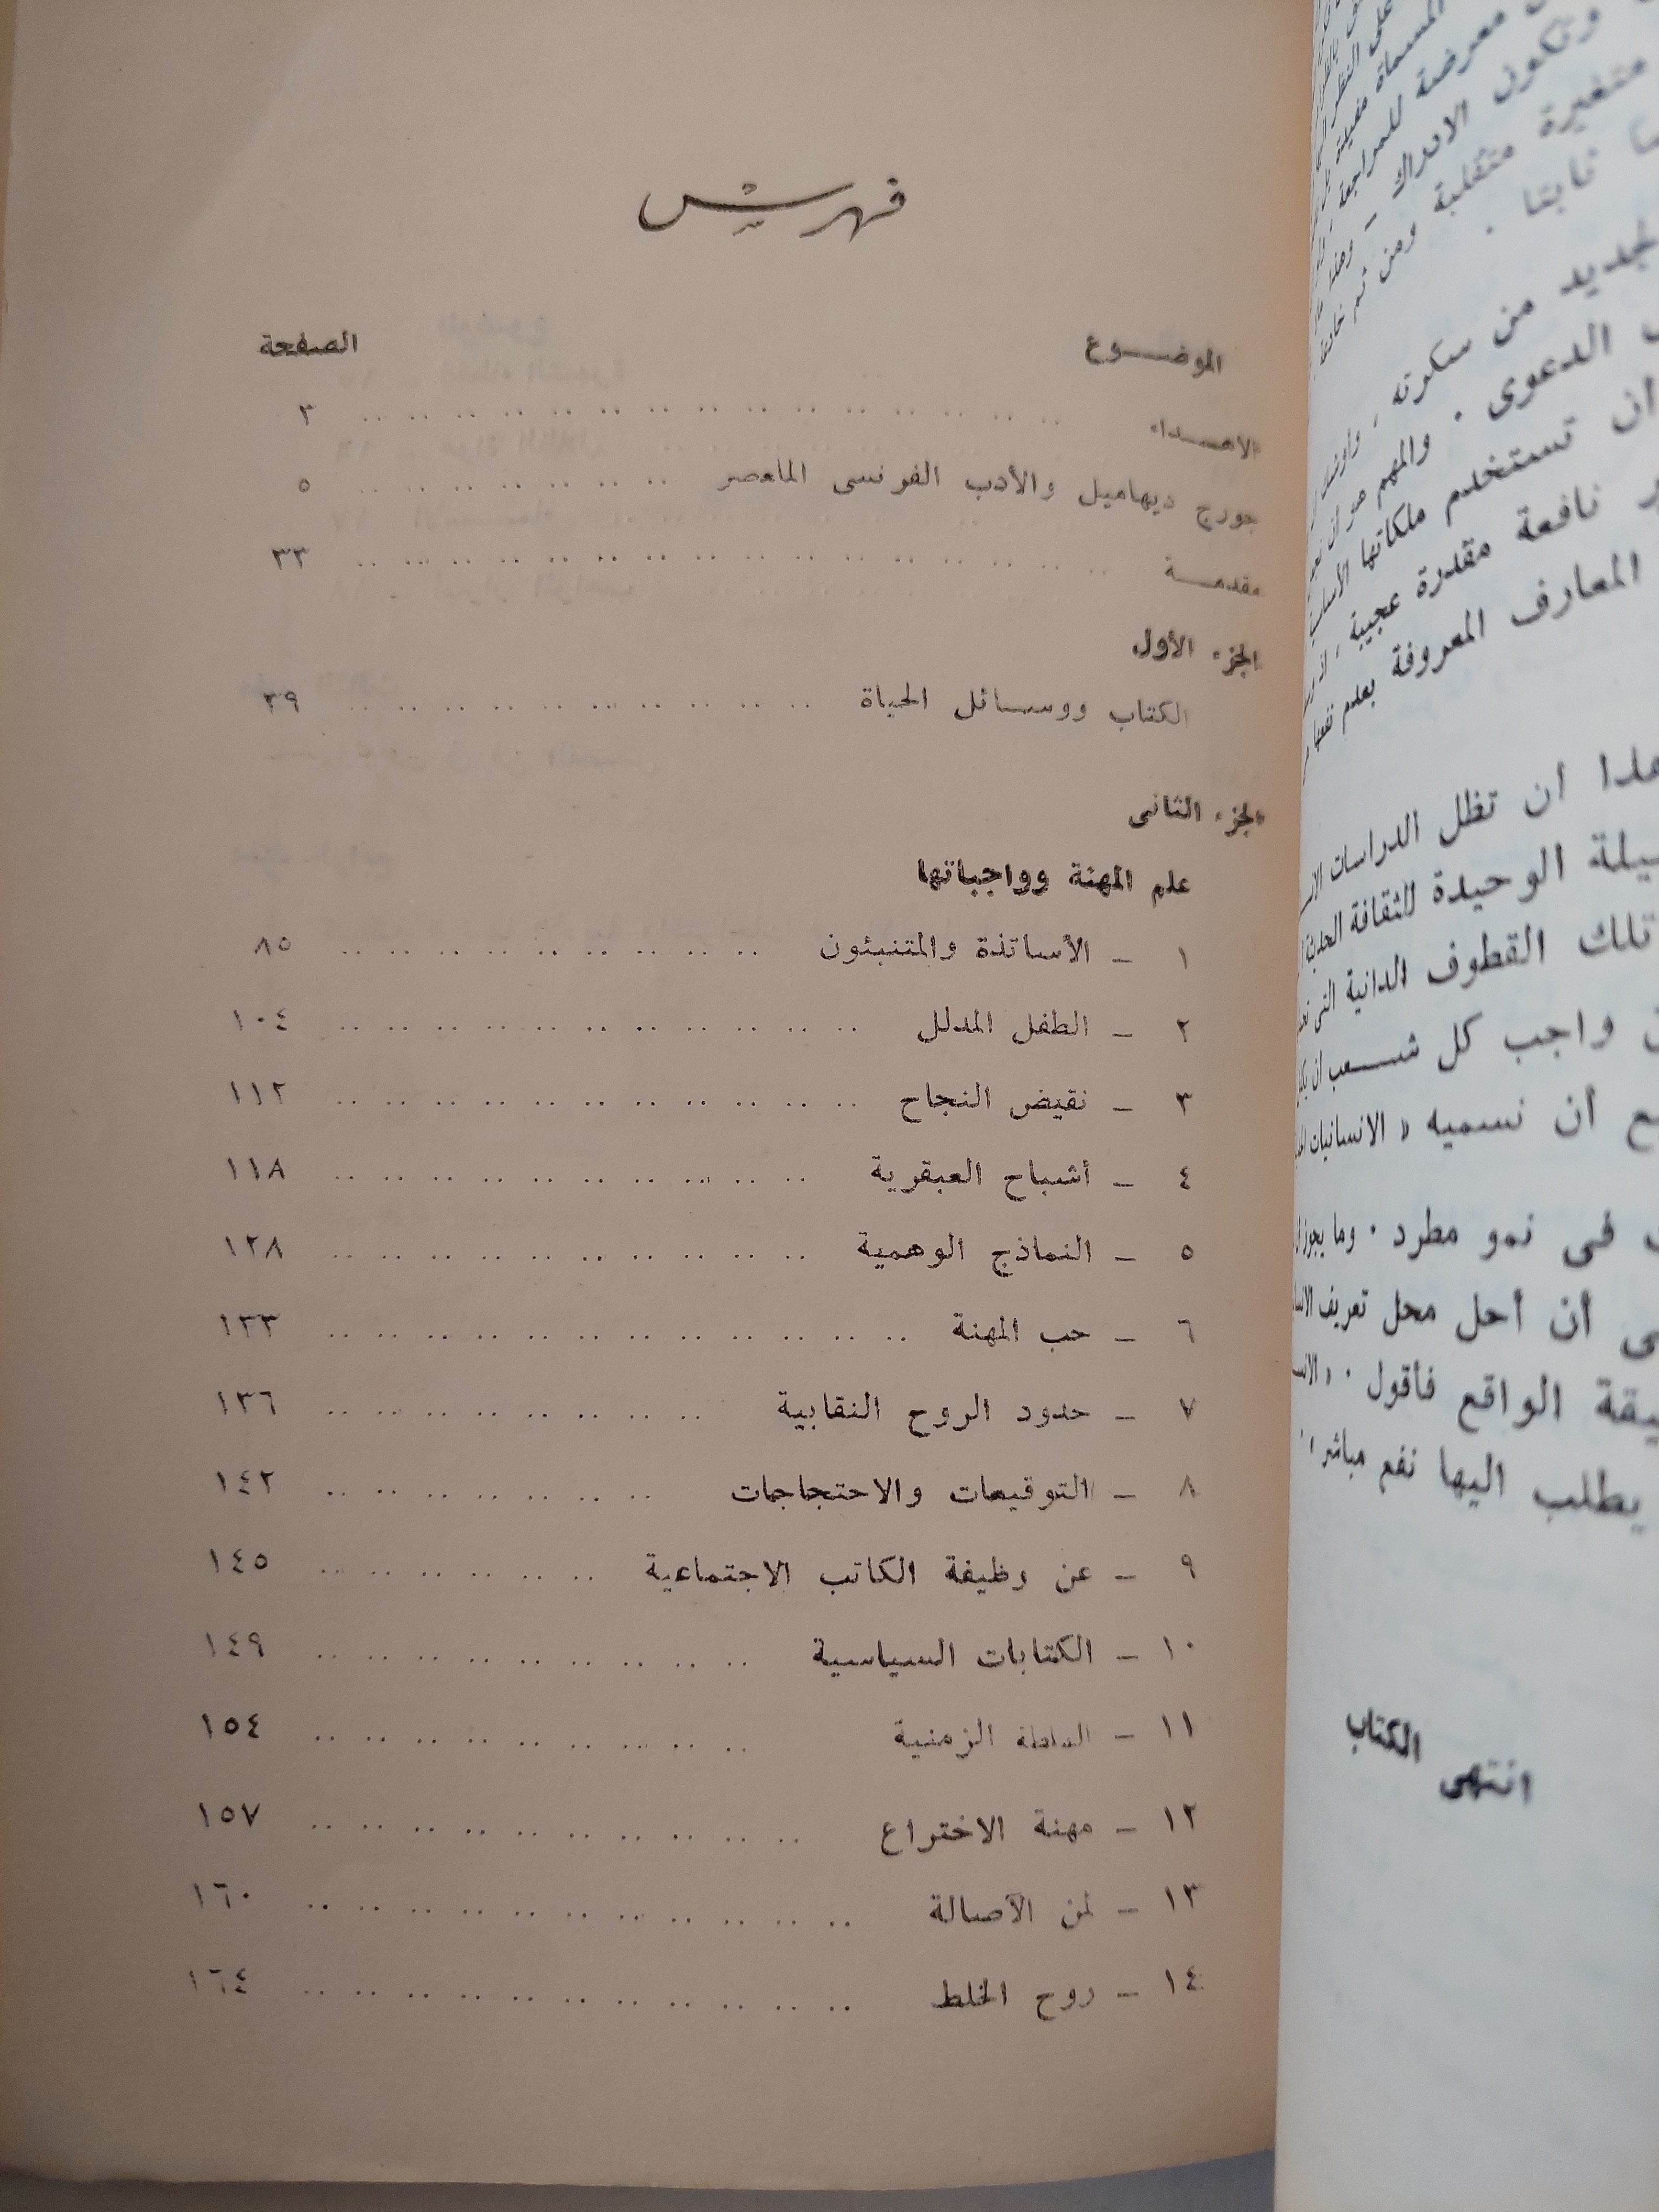 فهرس
الموضوع الصفحة
الاهداء ٣
جورج ديهاميل والأدب الفرنسى المعاصر ٥
مقدمة ٣٣
الجزء الأول
الكتاب ووسائل الحياة ٣٩
الجزء الثانى
علم المهنة وواجباتها
١ – الأساتذة والمتنبئون ٨٥
٢ – الطفل المدلل ١٠٤
٣ – نقيض النجاح ١١٢
٤ – أشباح العبقرية ١١٨
٥ – النماذج الوهمية ١٢٨
٦ – حب المهنة ١٣٣
٧ – حدود الروح النقابية ١٣٦
٨ – التوقيعات والاحتجاجات ١٤٢
٩ – عن وظيفة الكاتب الاجتماعية ١٤٥
١٠ – الكتابات السياسية ١٤٩
١١ – السلطة الزمنية ١٥٤
١٢ – مهنة الاختراع ١٥٧
١٣ – لمن الأصالة ١٦٠
١٤ – روح الخلط ١٦٤
معرضة للمراجعة
وتكون الادراك –
متغيرة متقلبة ومن ثم
ثابتا .
من سكرته ،
الدعوى . والمهم هو أن
ان تستخدم ملكاتها
نافعة مقدرة عجيبة ،
المعارف المعروفة بعلم
هذا أن تظل الدراسات
الوحيدة للثقافة
تلك القطوف الدانية التى
واجب كل شعب أن
أن نسميه « الانسانيات
فى نمو مطرد . وما يجوز
أن أحل محل تعريف
الواقع فأقول .
يطلب اليها نفع مباشر
انتهى الكتاب